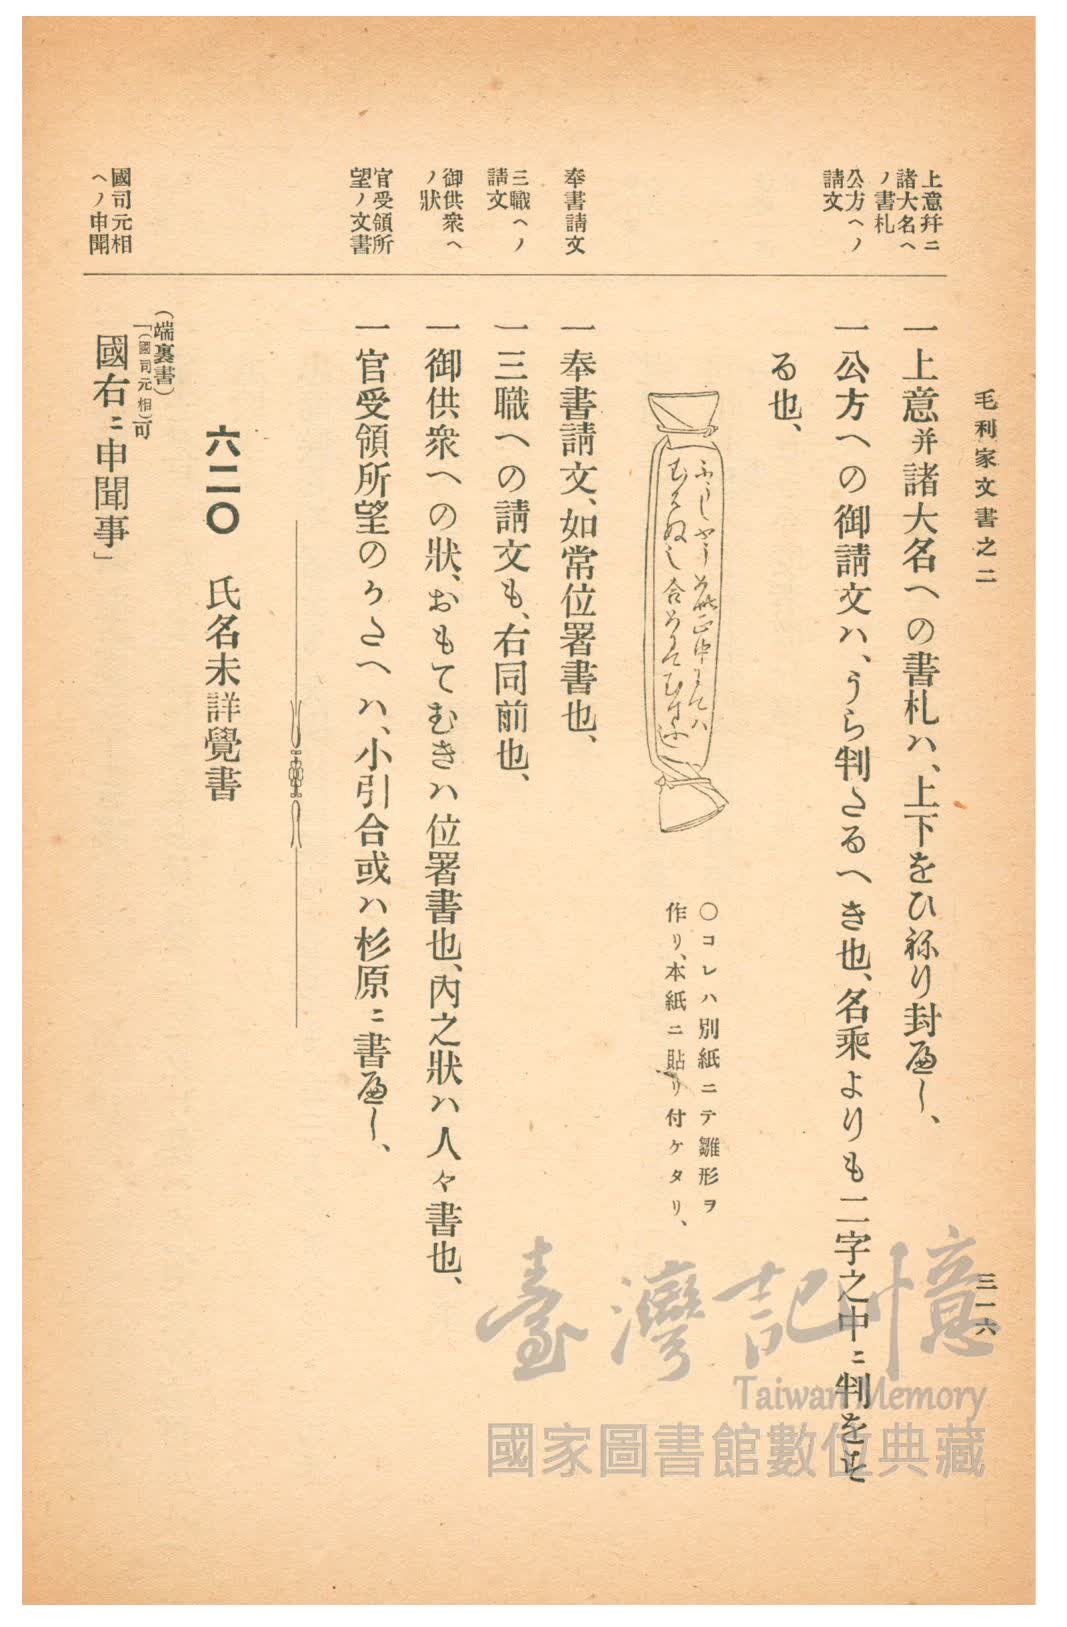 毛利家文書之二
三一六
上意幷ニ
諸大名ヘ
ノ書札
一上意并諸大名への書札ハ、上下をひねり封へし、
公方ヘノ
請文
一公方への御請文ハ、うら判たるへき也、名乘よりも二字之中ニ判をす
る也、
〇コレハ別紙ニテ雛形ヲ
作リ、本紙ニ貼リ付ケタリ、
奉書請文
一奉書請文、如常位署書也、
三職ヘノ
請文
一三職への請文も、右同前也、
御供衆ヘ
ノ狀
一御供衆への狀、おもてむきハ位署書也、內之狀ハ人々書也、
官受領所
望ノ文書
一官受領所望のかたへハ、小引合或ハ杉原ニ書へし、
六二〇 氏名未詳覺書
國司元相
ヘノ申聞
(端裏書)
「(國司元相)可
國右ニ申聞事」
臺灣記憶
Taiwan Memory
國家圖書館數位典藏